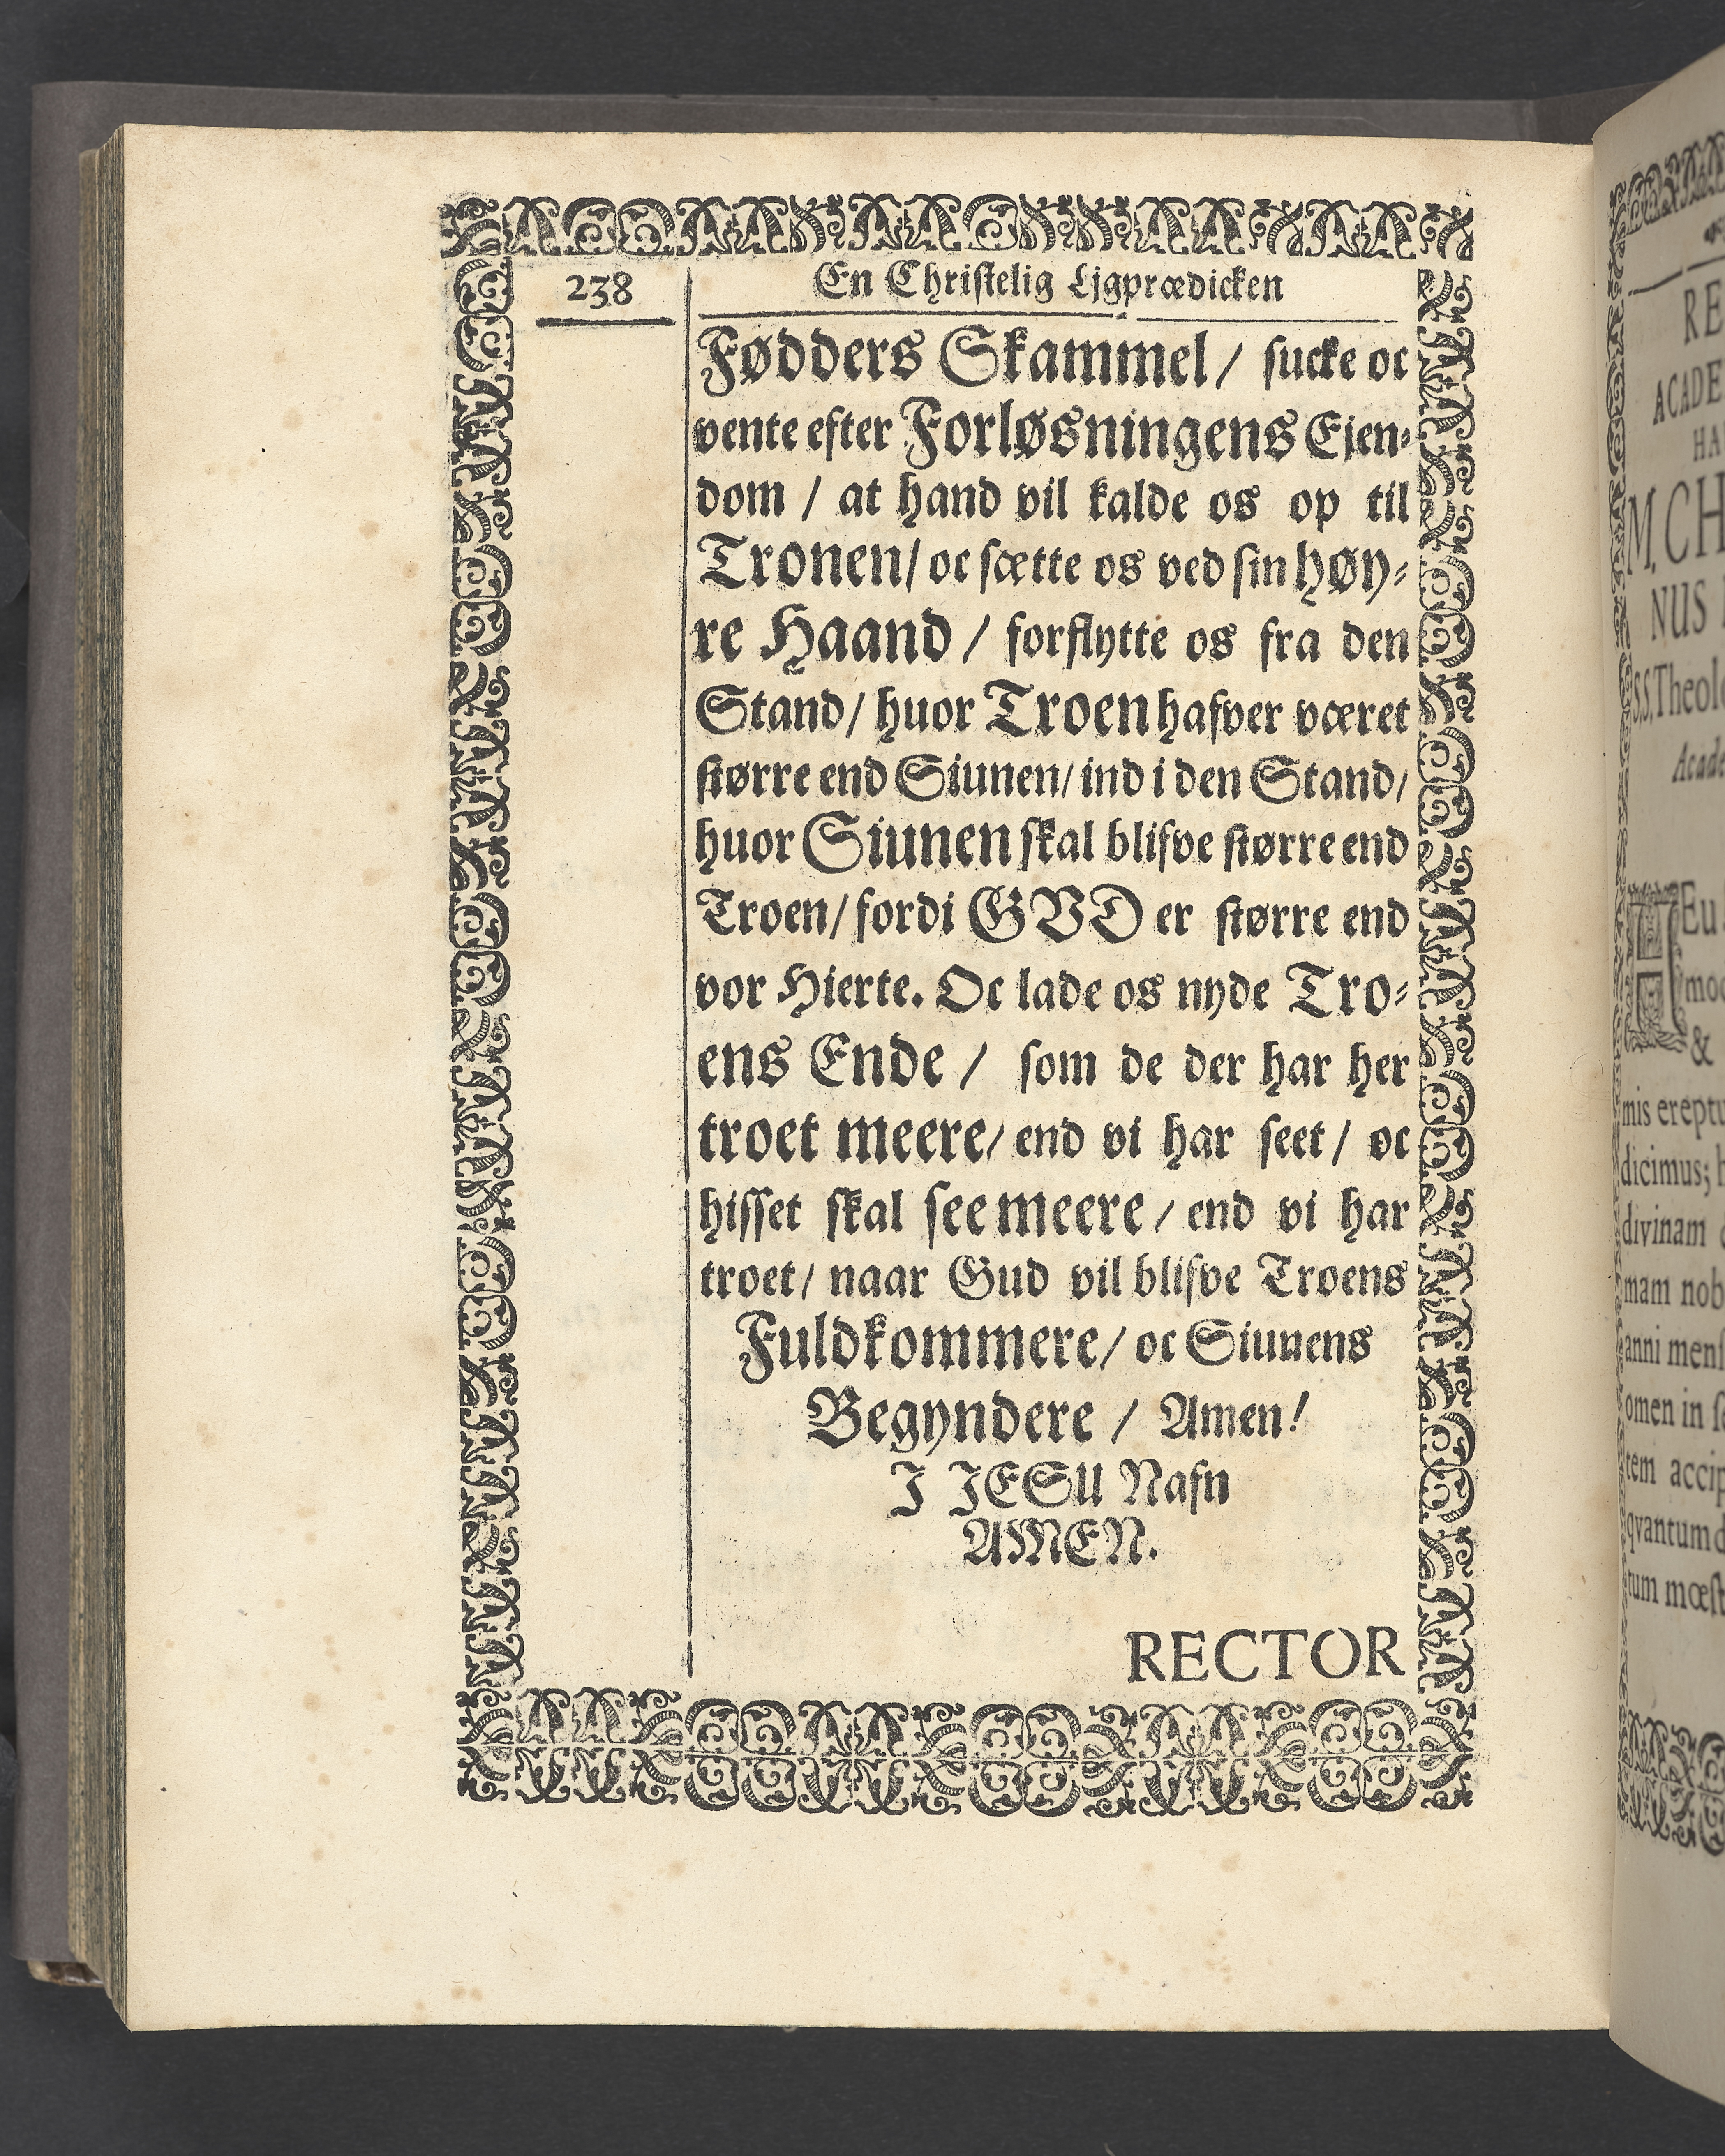 238
En Christelig Ligprædicken
Fødders Skammel / sucke oc
vente efter Forløsningens Ejen-
dom / at hand vil kalde os op til
Tronen / oc sætte os ved sin høy-
re Haand / forflytte os fra den
Stand / huor Troen hafver været
større end Siunen / ind i den Stand /
huor Siunen skal blifve større end
Troen / fordi GVD er større end
vor Hierte. Oc lade os nyde Tro-
ens Ende / som de der har her
troet meere / end vi har seet / oc
hisset skal see meere / end vi har
troet / naar Gud vil blifve Troens
Fuldkommere / oc Siunens
Begyndere / Amen!
I JESU Nafn
AMEN.
RECTOR
RE
ACADE
HA
M. CH
NUS
S.S. Theol
Acade
Eu
mod
&
mis ereptu
dicimus; h
divinam
mam nob
anni mens
omen in s
tem accip
qvantum d
tum mœst